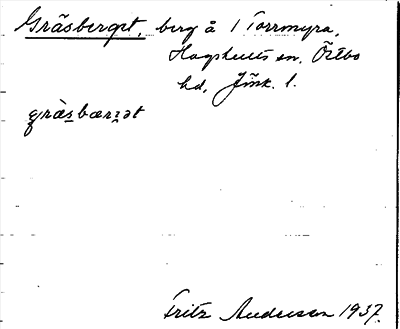 Gräsberget, berg å 1 Torrmyra,
Hagshults sn, Östbo
hd, Jönk. l.
gràsbærꞅət
Fritz Andersson 1937